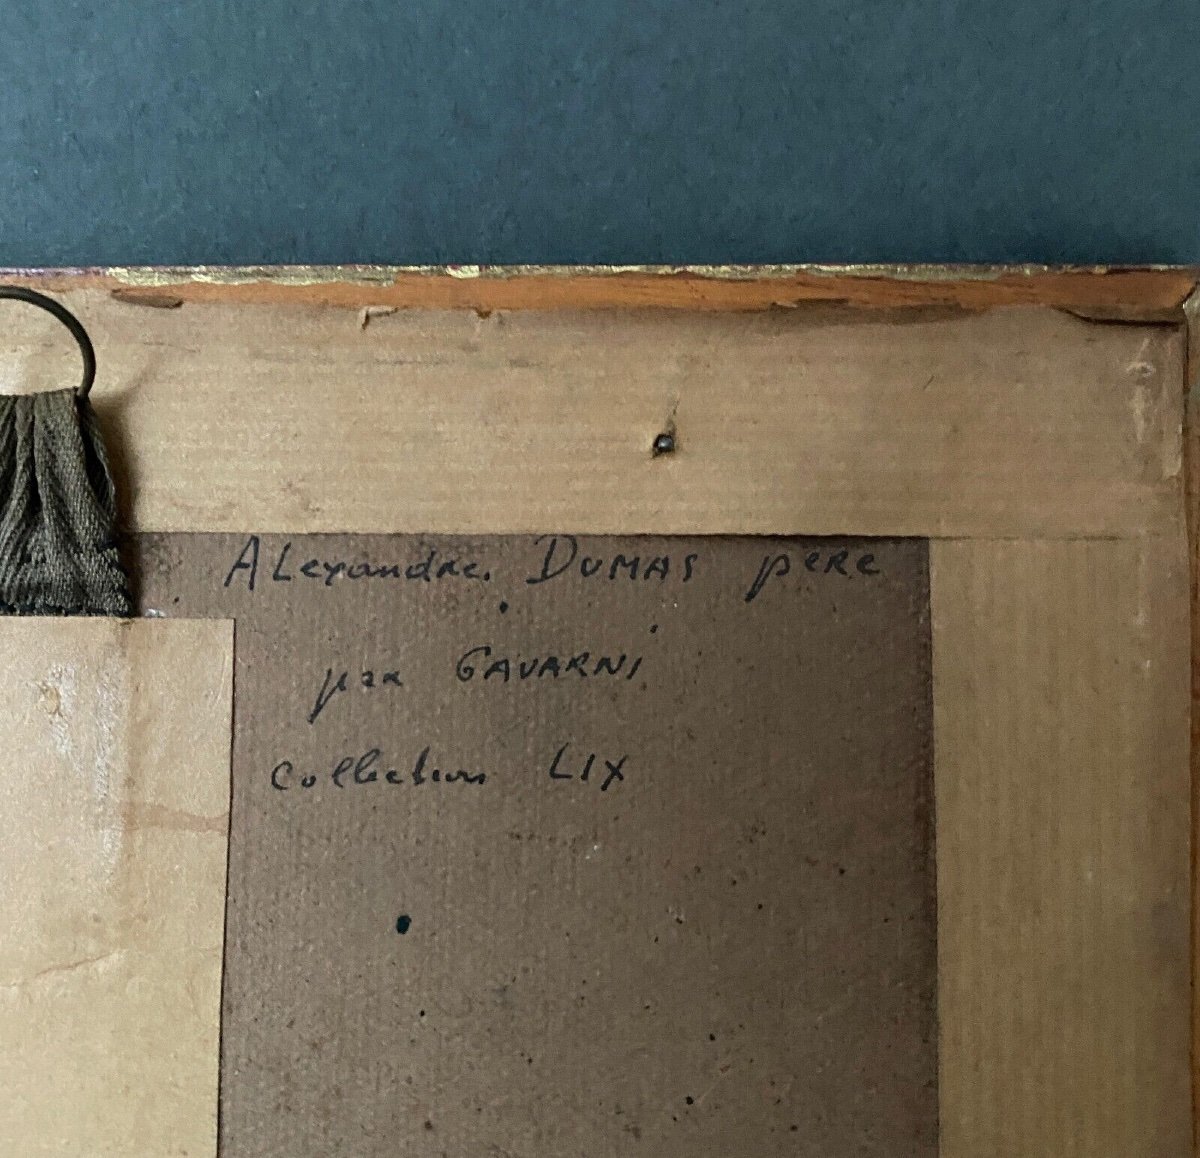 ALexandre. DUMAS pere
par GAVARNI
Collection LIX